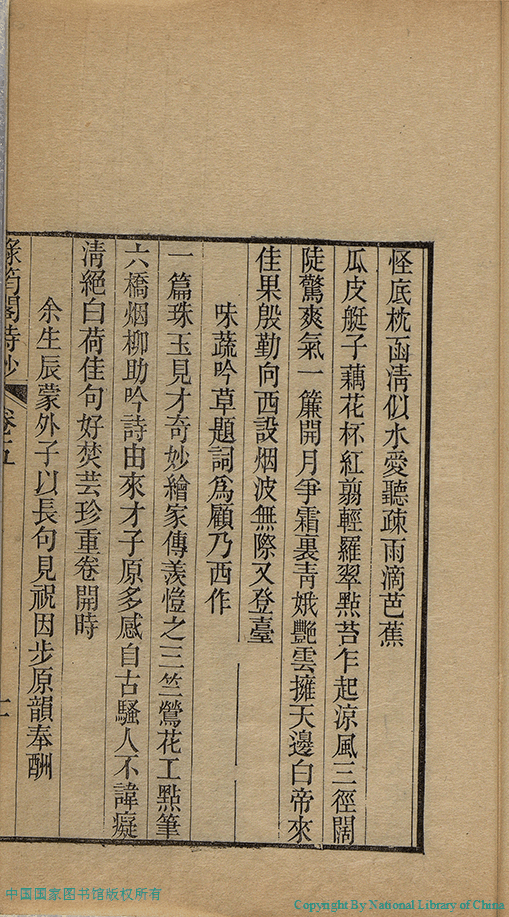 怪底枕函清似水愛聽疎雨滴芭蕉
瓜皮艇子藕花杯紅翦輕羅翠點苔乍起涼風三徑闊
陡驚爽氣一簾開月爭霜裏青娥艷雲擁天邊白帝來
佳果殷勤向西設烟波無際又登臺
味蔬吟草題詞爲顧乃西作
一篇珠玉見才奇妙繪家傳羨愷之三竺鶯花工點筆
六橋烟柳助吟詩由來才子原多感自古騷人不諱癡
清絕白荷佳句好焚芸珍重卷開時
余生辰蒙外子以長句見祝因步原韻奉酬
綠筠閣詩鈔
卷五
中国国家图书馆版权所有
Copyright By National Library of China